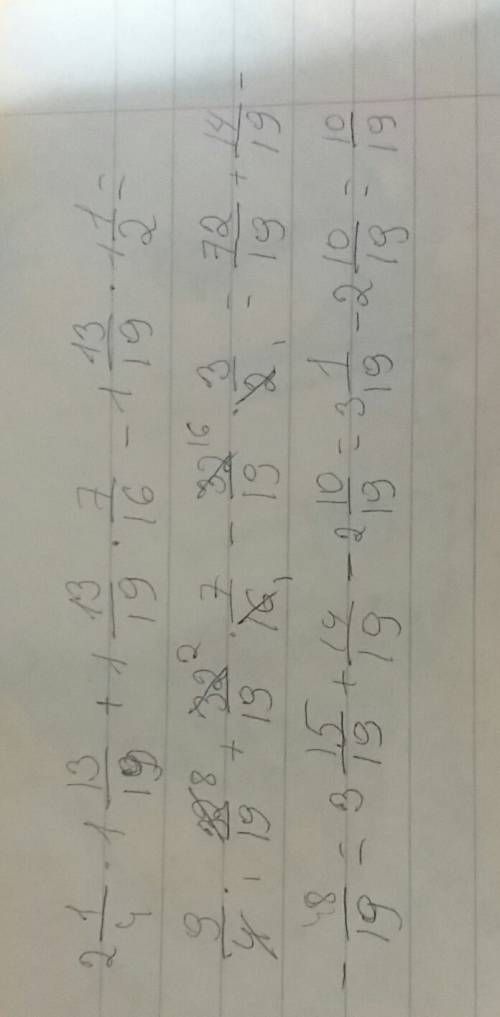 2 1/4 · 1 13/19 + 1 13/19 · 7/16 - 1 13/19 · 1 1/2 =
9/4 · 32 8/19 + 32 2/19 · 7/16 1 - 32 16/19 · 3/2 1 = 72/19 + 14/19 -
- 48/19 = 3 15/19 + 14/19 - 2 10/19 = 3 1/19 - 2 10/19 = 10/19